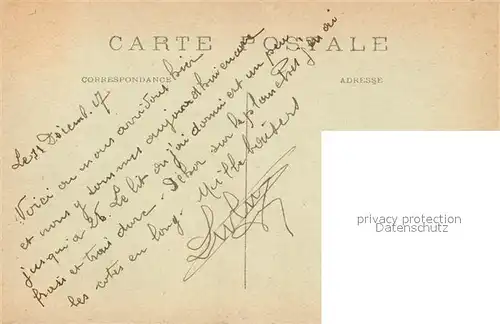 CARTE POSTALE
CORRESPONDANCE
ADRESSE
Le 11 Décemb. 17
Voici ou nous arrivont hier
et nous y sommes aujourdhui encore
jusqu'a 26. Le lit ou j'ai dormi est un peu
frais et trais dure. Dehor sur les planches j'en ai
les cotes en long. Mille baisers
privacy protection
Datenschutz